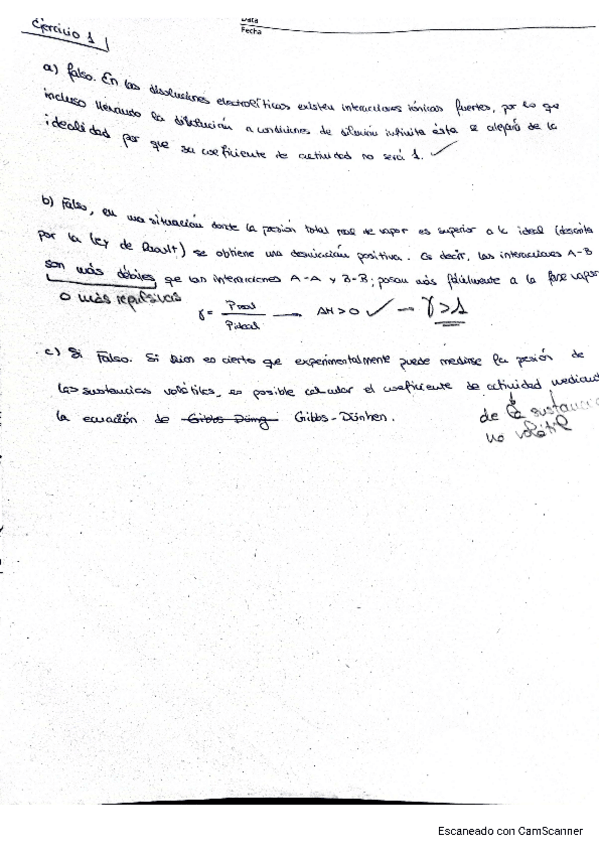 Data
Fecha
Ejercicio 1
a) falso. En las disoluciones electrolíticas existen interacciones iónicas fuertes, por lo que
incluso llevando la disolución a condiciones de dilución infinita ésta se alejará de la
idealidad por que su coeficiente de actividad no será 1. ✓
b) Falso, en una situación donde la presión total real de vapor es superior a la ideal (descrita
por la Ley de Raoult) se obtiene una desviación positiva. Es decir, las interacciones A-B
son más débiles que las interacciones A-A y B-B; pasan más fácilmente a la fase vapor
o más repulsivas
γ = Preal / Pideal → ΔH>0 ✓ — γ>1
c) Si Falso. Si bien es cierto que experimentalmente puede medirse la presión de
las sustancias volátiles, es posible calcular el coeficiente de actividad mediante
de la sustancia
la ecuación de Gibbs-Dünhen.
no volátil
Escaneado con CamScanner